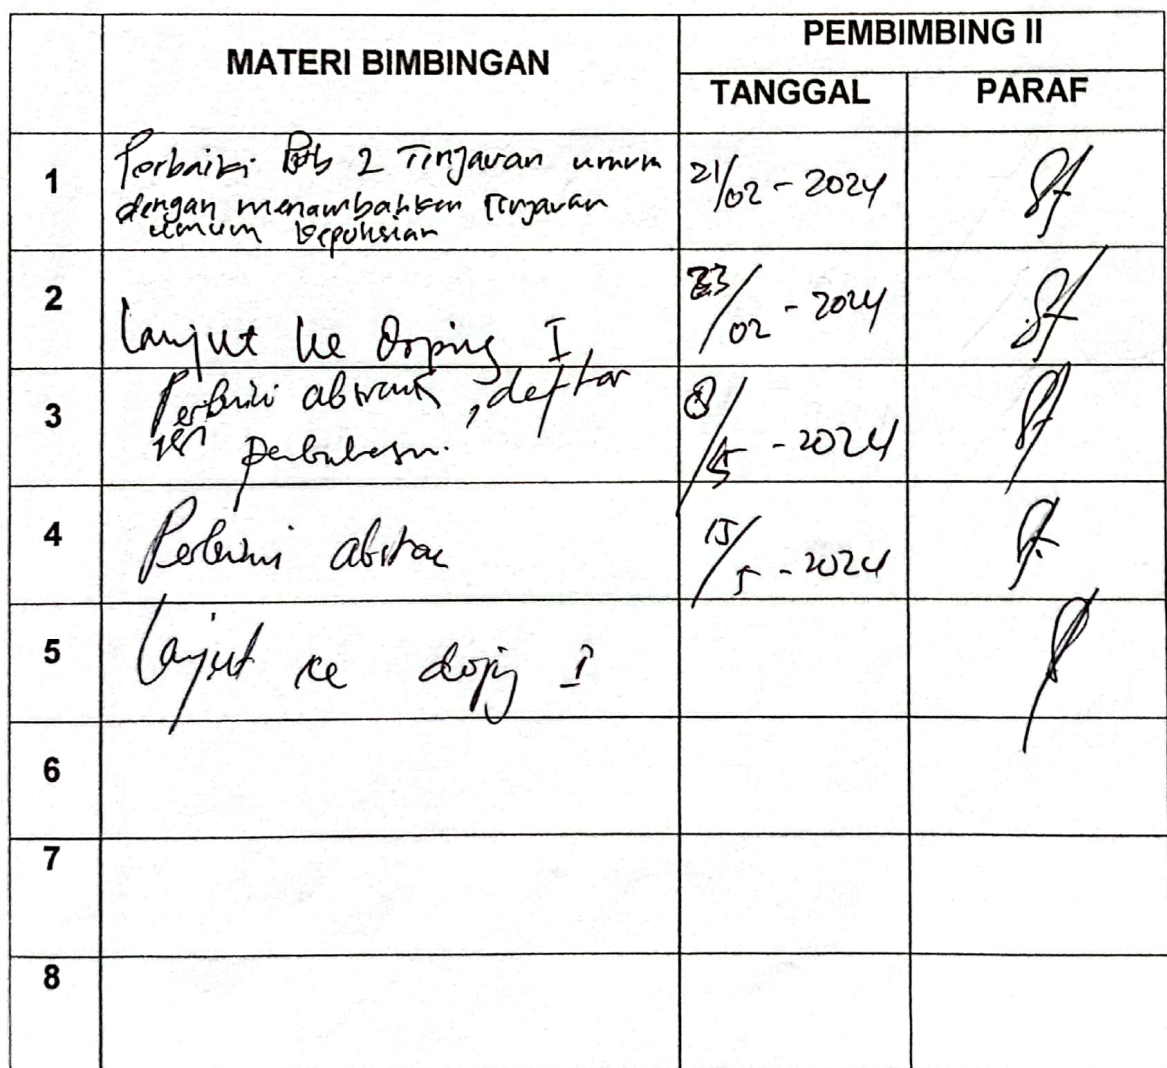 MATERI BIMBINGAN
PEMBIMBING II
TANGGAL
PARAF
1
Perbaiki Bab 2 Tinjauan umum
dengan menambahkan Tinjauan
umum kepolisian
21/02 - 2024
2
Lanjut ke Doping I
23/02 - 2024
3
Perbaiki abstrak, daftar
isi pembahasan.
8/5 - 2024
4
Perbaiki abstrak
15/5 - 2024
5
Lanjut ke doping I
6
7
8